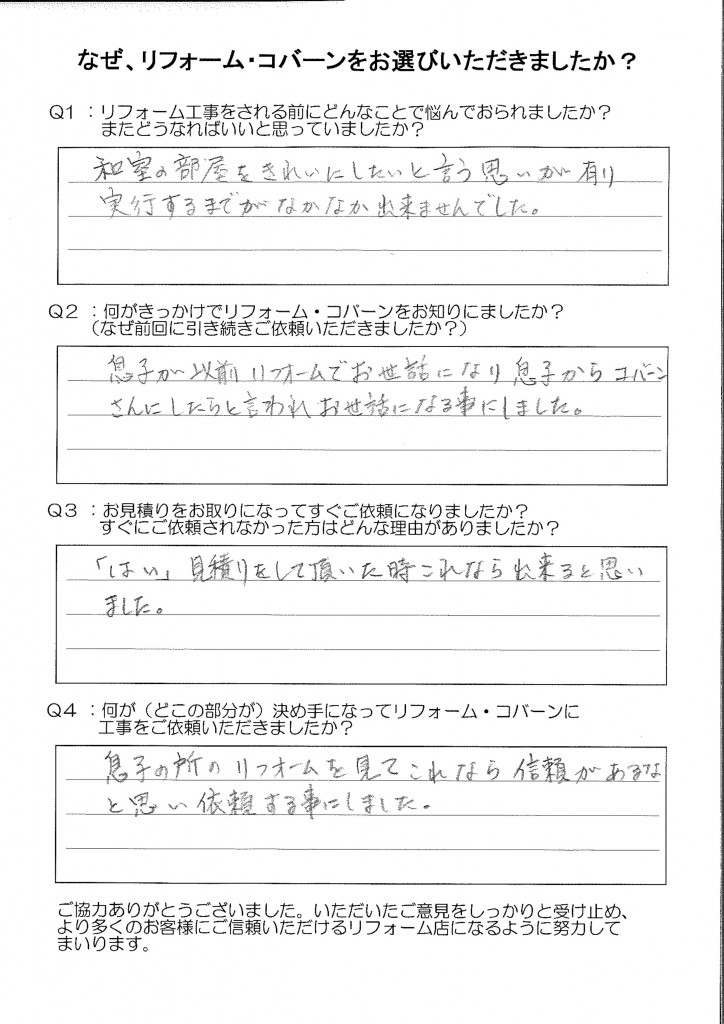 なぜ、リフォーム・コバーンをお選びいただきましたか？
Q1 ：リフォーム工事をされる前にどんなことで悩んでおられましたか？
またどうなればいいと思っていましたか？
和室の部屋をきれいにしたいと言う思いが有り
実行するまでがなかなか出来ませんでした。
Q2 ：何がきっかけでリフォーム・コバーンをお知りにましたか？
（なぜ前回に引き続きご依頼いただきましたか？）
息子が以前リフォームでお世話になり息子からコバーン
さんにしたらと言われお世話になる事にしました。
Q3 ：お見積りをお取りになってすぐご依頼になりましたか？
すぐにご依頼されなかった方はどんな理由がありましたか？
「はい」見積りをして頂いた時これなら出来ると思い
ました。
Q4 ：何が（どこの部分が）決め手になってリフォーム・コバーンに
工事をご依頼いただきましたか？
息子の所のリフォームを見てこれなら信頼があるな
と思い依頼する事にしました。
ご協力ありがとうございました。いただいたご意見をしっかりと受け止め、
より多くのお客様にご信頼いただけるリフォーム店になるように努力して
まいります。